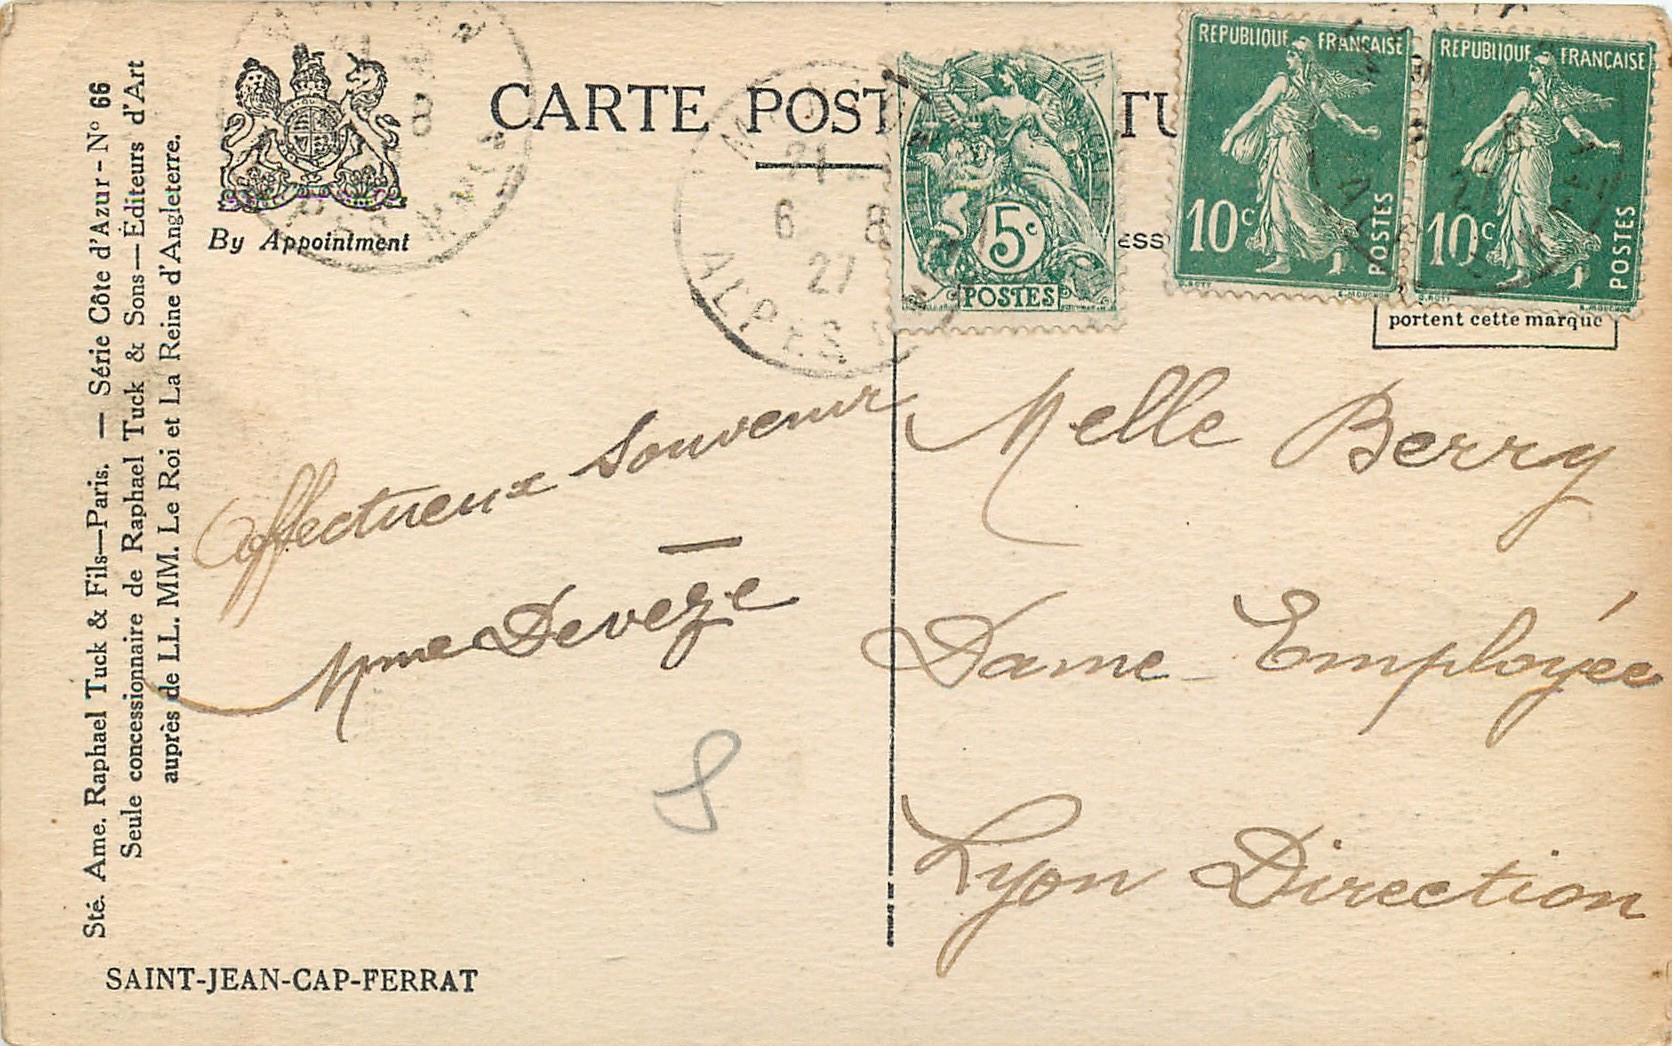 Sté. Ame. Raphael Tuck & Fils—Paris. — Série Côte d'Azur - Nº 66
Seule concessionnaire de Raphael Tuck & Sons—Éditeurs d'Art
auprès de LL. MM. Le Roi et La Reine d'Angleterre.
By Appointment
CARTE POST TU
ESS
21
6 8
27
ALPES
5c
POSTES
REPUBLIQUE FRANÇAISE
10c
POSTES
REPUBLIQUE FRANÇAISE
10c
POSTES
portent cette marque
Affectueux Souvenir
Mme Devèze
Melle Berry
Dame Employée
Lyon Direction
SAINT-JEAN-CAP-FERRAT